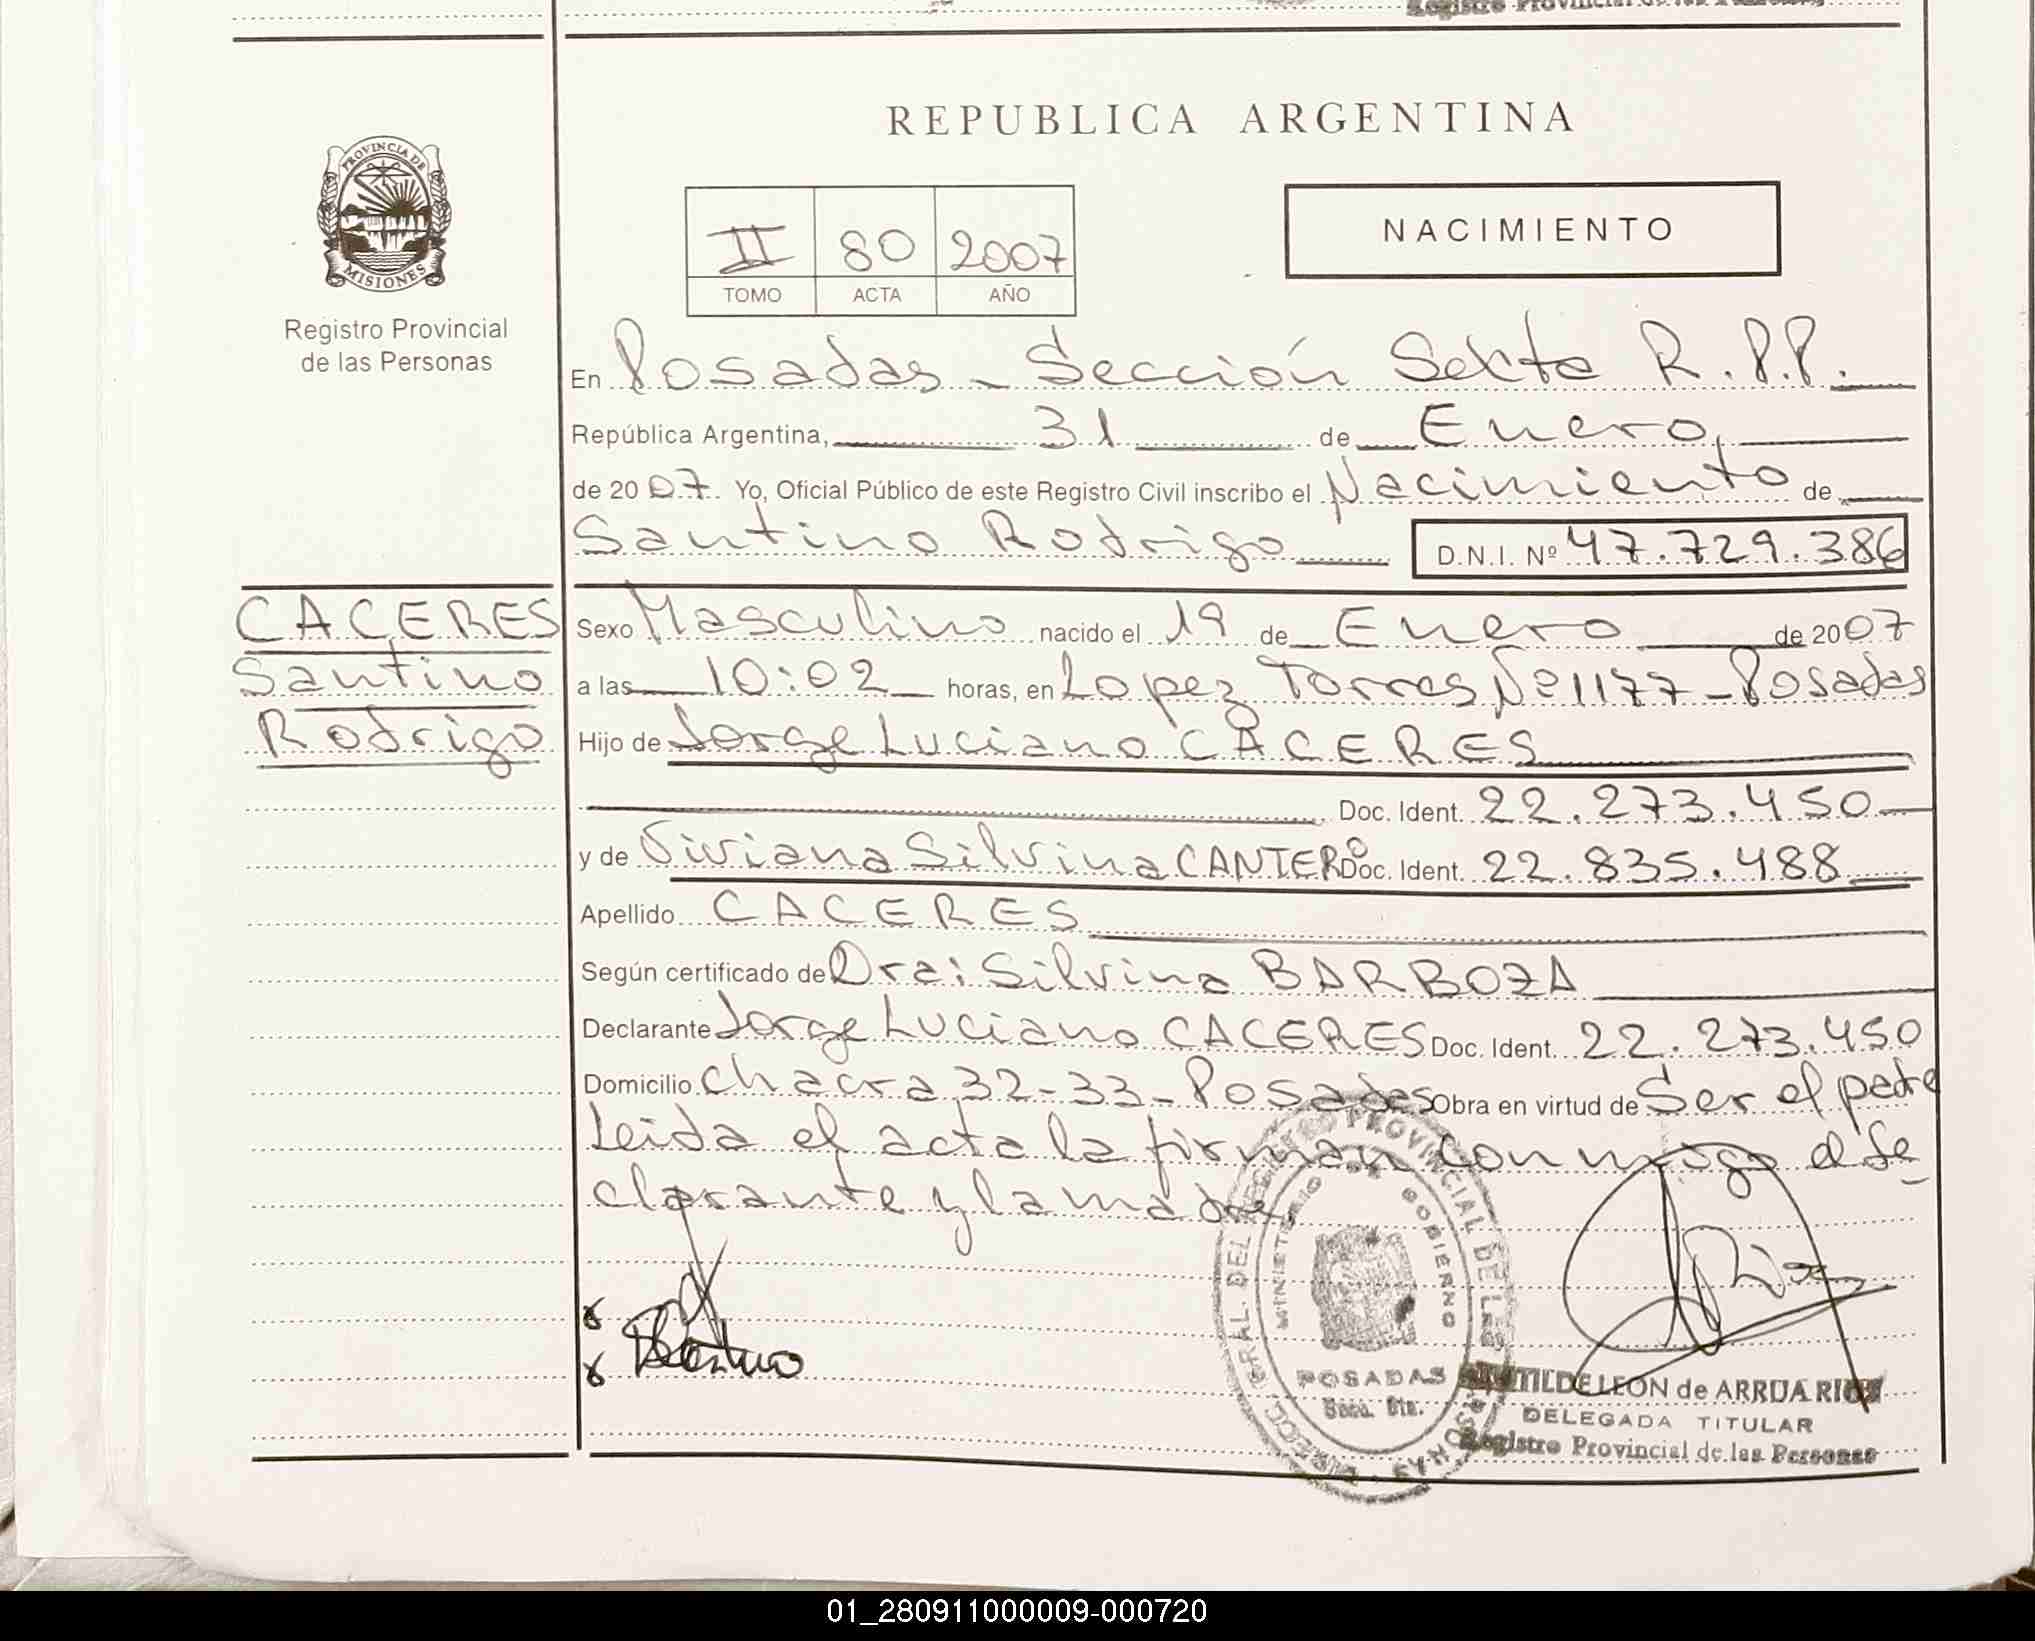 Registro Provincial de las Personas
REPUBLICA ARGENTINA
PROVINCIA DE
MISIONES
Registro Provincial
de las Personas
II 80 2007
TOMO ACTA AÑO
NACIMIENTO
En Posadas - Sección Sexta R.P.P.
República Argentina, 31 de Enero,
de 2007. Yo, Oficial Público de este Registro Civil inscribo el Nacimiento de
Santino Rodrigo D.N.I. Nº 47.729.386
CACERES
Santino
Rodrigo
Sexo Masculino nacido el 19 de Enero de 2007
a las 10:02 horas, en Lopez Torres Nº 1177 - Posadas
Hijo de Jorge Luciano CACERES
Doc. Ident. 22.273.450
y de Viviana Silvina CANTERO Doc. Ident. 22.835.488
Apellido CACERES
Según certificado de Dra: Silvina BARBOZA
Declarante Jorge Luciano CACERES Doc. Ident. 22.273.450
Domicilio Chacra 32-33 - Posadas Obra en virtud de Ser el padre
Leida el acta la firman conmigo el de
clarante y la madre.
DIRECC. GRAL. DEL REGISTRO PROVINCIAL DE LAS PERSONAS
MINISTERIO DE GOBIERNO
POSADAS
Secc. 6ta.
LEON de ARRUA RIOS
DELEGADA TITULAR
Registro Provincial de las Personas
01_280911000009-000720